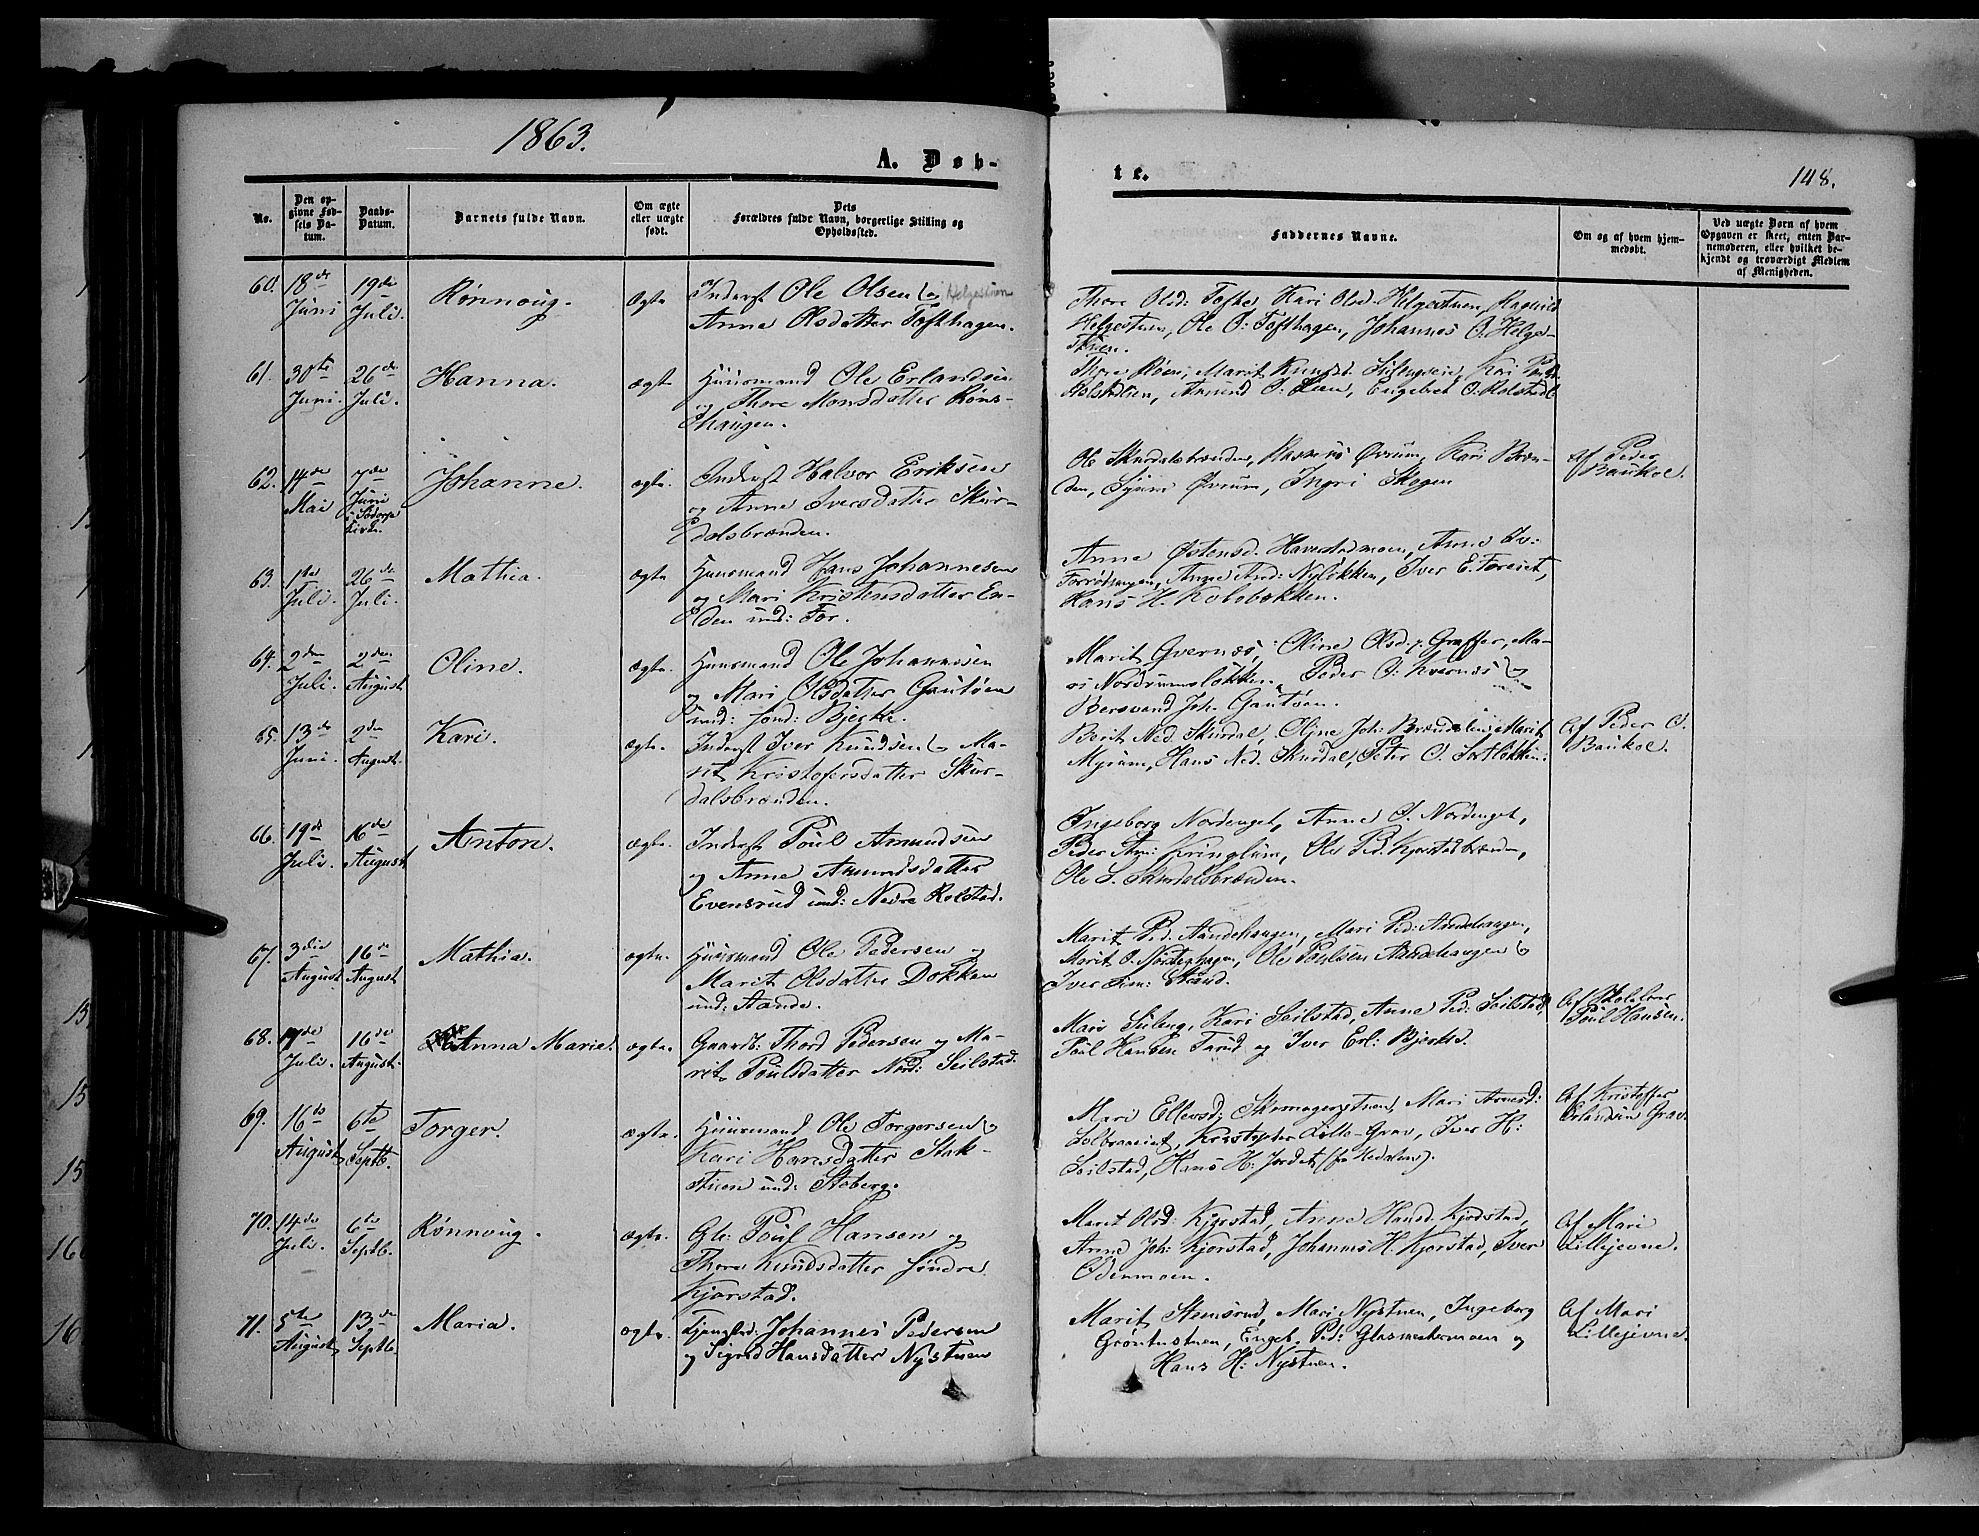 1863.
A. Døb-
te.
148.
No.
Den op-
givne Fød-
sels Da-
tum.
Daabs-
Datum.
Barnets fulde Navn.
Om ægte
eller uægte
født.
Dets
Forældres fulde Navn, borgerlige Stilling og
Opholdssted.
Faddernes Navne.
Om og af hvem hjem-
medøbt.
Ved uægte Børn af hvem
Opgaven er skeet, enten Bar-
nemoderen, eller hvilket be-
kjendt og troværdigt Medlem
af Menigheden.
60. 18de Juni
19de Juli.
Rønnoug.
ægte
Inderst Ole Olsen og Helgestuen
Anne Olsdatter Tofthagen.
Thore Olsd: Tofte, Kari Olsd. Helgestuen, Ragnild
Helgestuen, Ole O: Tofthagen, Johannes O. Helge-
stuen.
61. 30te Juni.
26de Juli.
Hanna.
ægte
Huusmand Ole Erlandsen
og Thore Monsdatter Rons-
haugen.
Thore Røen, Marit Knudsd.
Amund O: Lien, Engebret O. Kolstad
62. 14de Mai
7de Juni
i Sødorp
Kirke.
Johanne.
ægte.
Inderst Halvor Eriksen
og Anne Iversdatter Skur-
dalsbrænden.
Ole Skurdalsbrænden, Rasmus Øvrum, Kari Bræn-
den, Syver Øvrum, Ingri Skogen
Af Peder
Baukol.
63. 1ste Juli.
26de Juli.
Mathea.
ægte
Huusmand Hans Johannesen
og Mari Kristensdatter En-
den und: For.
Anne Østensd. Havrstadmoen, Anne Iv:
Anne And: Nyløkken, Iver E. Foreiet,
Hans H. Kolobækken.
64. 2den Juli.
2den August
Oline.
ægte.
Huusmand Ole Johannesen
og Mari Olsdatter Gautøen
und: sønd: Bjerke.
Marit Qvernæs, Oline Olsd. Graffer, Ma-
ri Nordrumsløkken, Peder O: Kvernæs og
Bersvend Joh. Gautøen.
65. 13de Juni.
2den August.
Kari.
ægte.
Inderst Iver Knudsen og Ma-
rit Kristofersdatter Skur-
dalsbrænden.
Berit Ned. Skurdal, Oline Joh: Brændslien, Marit
Myrum, Hans Ned. Skurdal, Peter O. Sortløkken.
Af Peder O.
Baukol.
66. 19de Juli.
16de August
Anton.
ægte.
Inderst Poul Amundsen
og Anne Amundsdatter
Evensrud und: Nedre Kolstad.
Ingeborg Nordenget, Anne O. Nordenget,
Peder Am: Kringlum, Ole Ped. Kjorstadbrænden,
Ole S. Skurdalsbrænden.
67. 3die August
16de August
Mathia.
ægte.
Huusmand Ole Pedersen og
Marit Olsdatter Dokken
und: Aande.
Marit Ped. Aandehaugen, Mari Ped: Aandehaugen,
Marit O. Ole Poulsen Aandehaugen og
Iver Sim: Strand.
68. 1de Juli.
16de August.
Anna Marie.
ægte.
Gaardb: Thord Pedersen og Ma-
rit Poulsdatter Nord: Seilstad.
Mari Kari Seilstad, Anne Ped: Seilstad,
Poul Hansen Tarud og Iver Erl: Bjerke.
Af Skolelærer
Poul Hansen.
69. 16de August
6te Septb.
Torger.
ægte.
Huusmand Ole Torgersen og
Kari Hansdatter Stak-
stuen und: Steberg.
Mari Ellevsd: Skomagerstuen, Mari Arnesd:
Solbraaeiet, Kristopher Lille-Grav, Iver H:
Seilstad, Hans H: Jordet (fra Hedalens).
Af Kristoffer
Erlandsen Grav.
70. 14de Juli.
6te Septb.
Rønnoug.
ægte.
Gb: Poul Hansen og
Thore Knudsdatter søndre
Kjorstad.
Marit Olsd: Kjorstad, Anne Hansd. Kjorstad,
Anne Joh: Kjorstad, Johannes H. Kjorstad, Iver
Odenmoen.
Af Mari
Lillejevne.
71. 5te August
13de Septb.
Maria.
ægte.
Johannes Pedersen
og Sigrid Hansdatter Nystuen
Marit Stensrud, Mari Nystuen, Ingeborg
Grøntustuen, Engeb. Ped: Glasmestermoen og
Hans H: Nystuen.
Af Mari
Lillejevne.